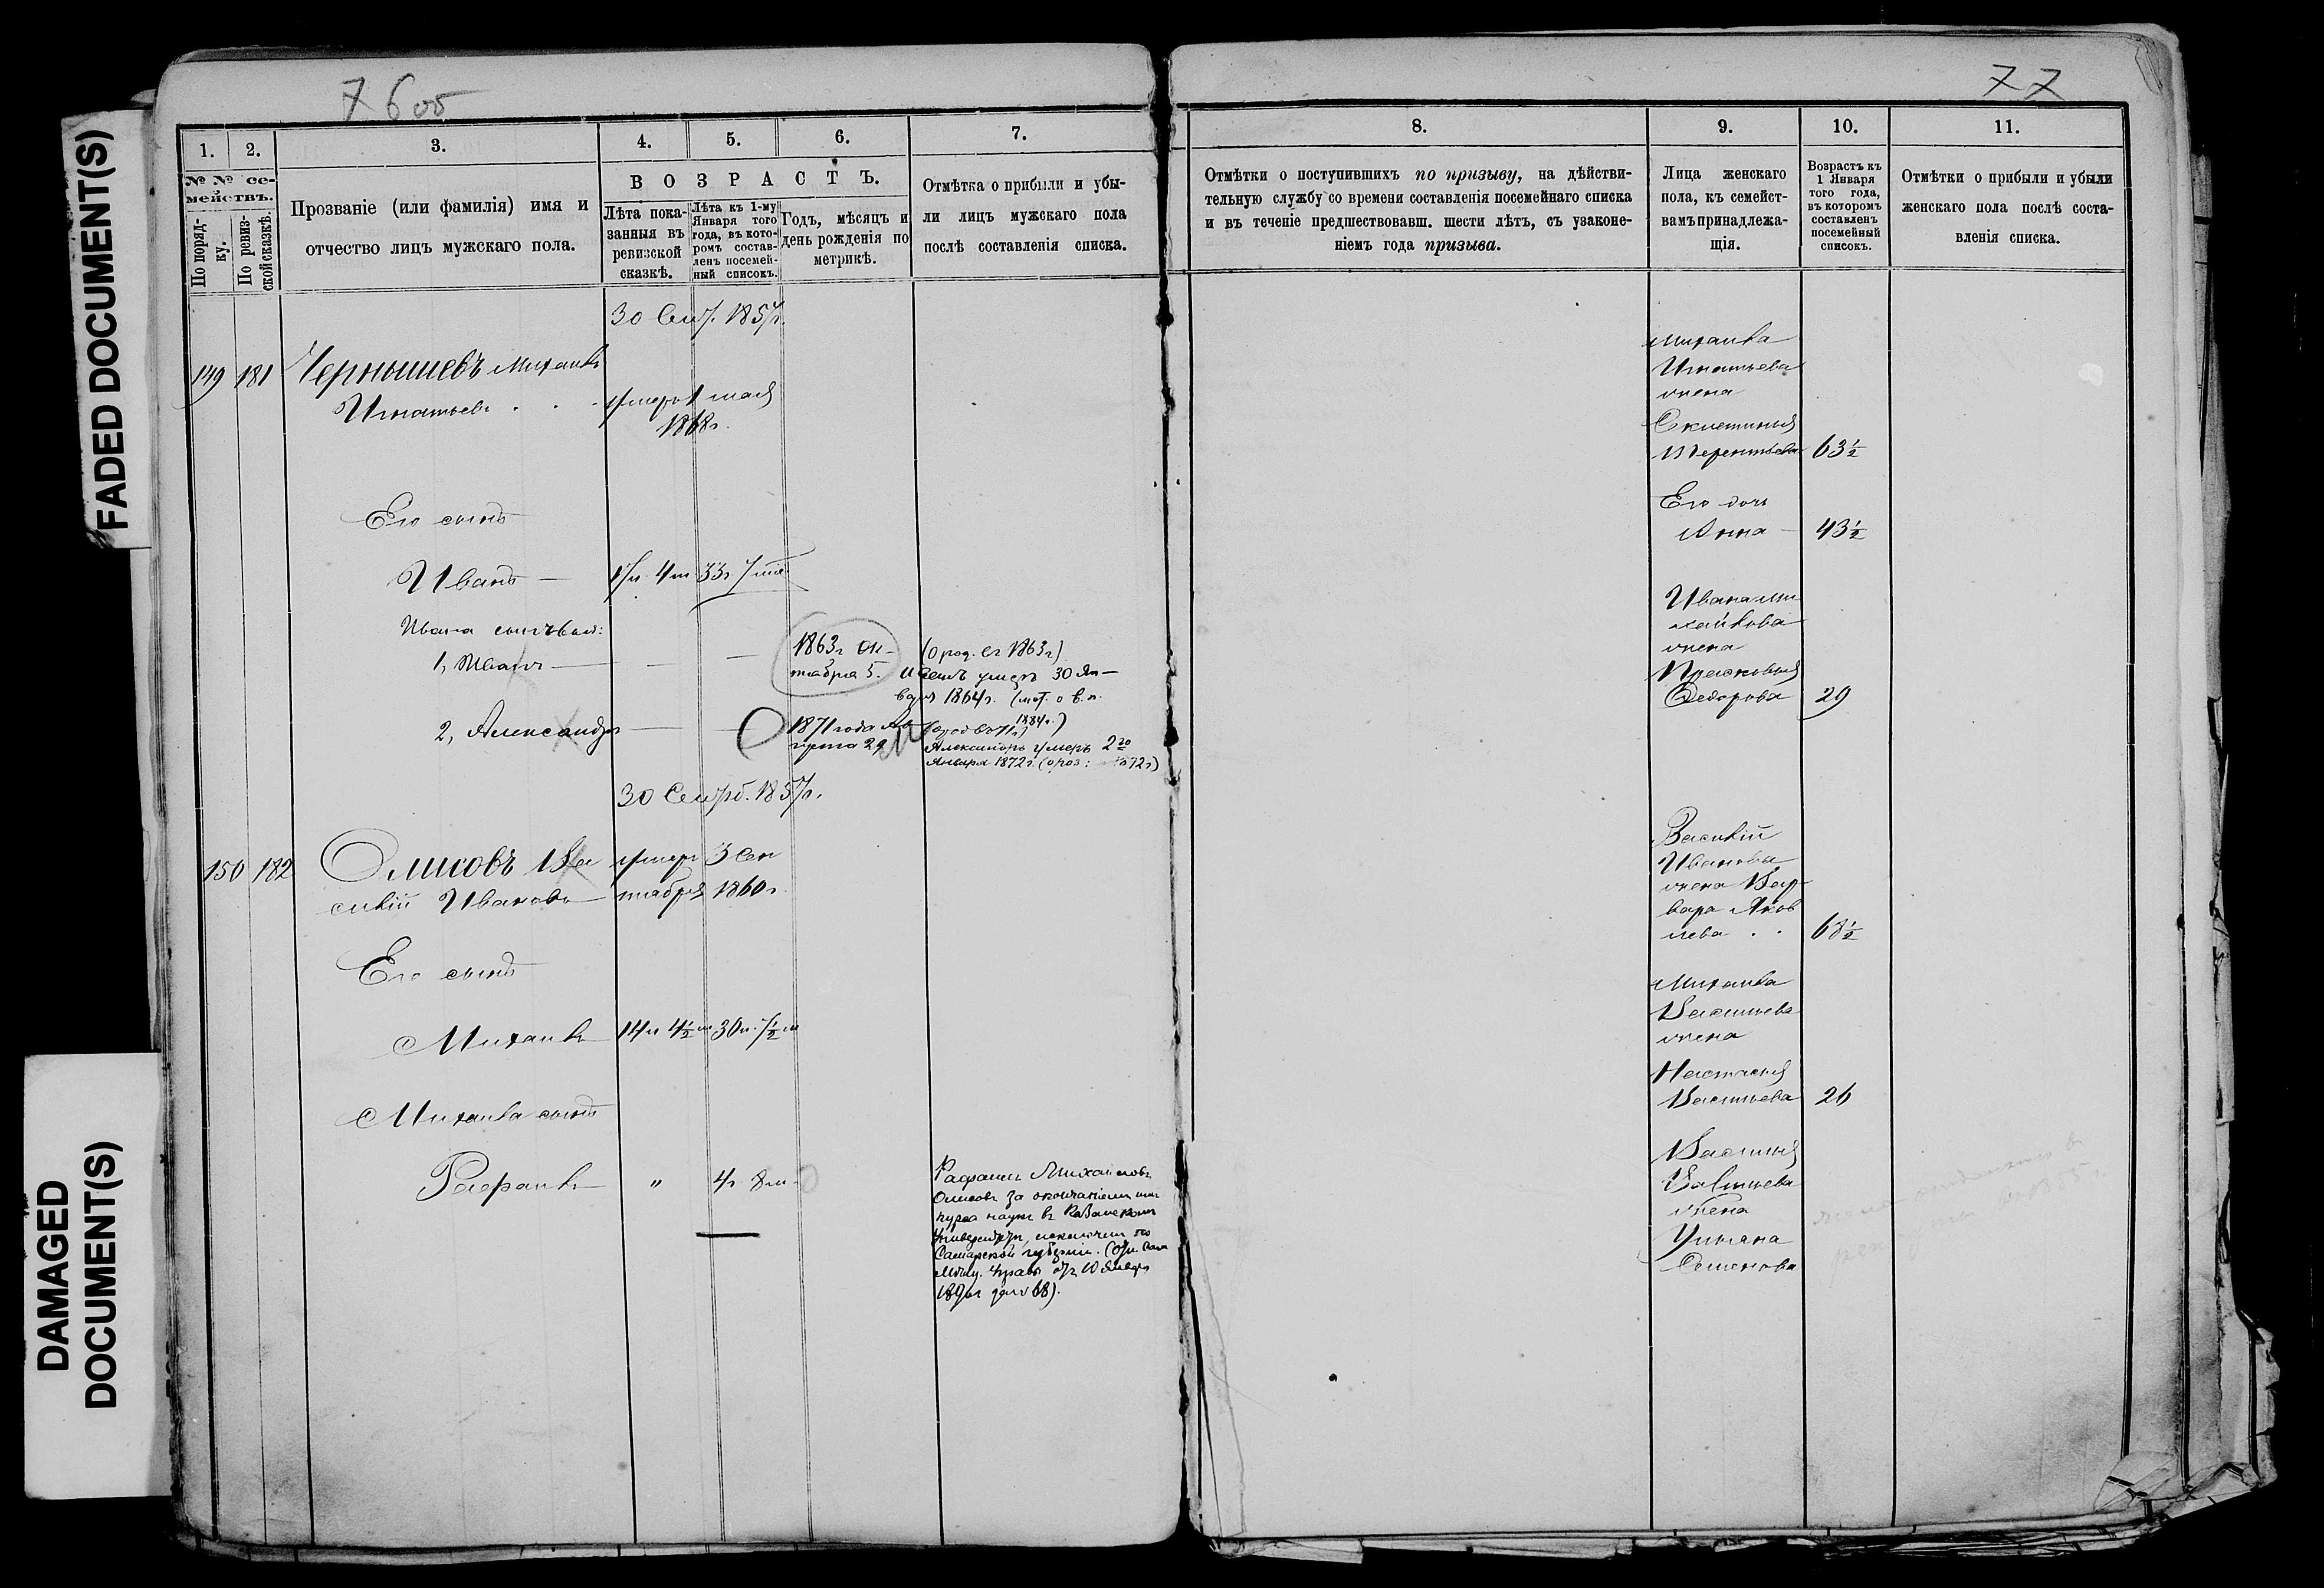 76 об
77
FADED DOCUMENT(S)
DAMAGED
DOCUMENT(S)
1.
2.
3.
4.
5.
6.
7.
№ № се-
мействъ.
По поряд-
ку.
По ревиз-
ской сказкѣ.
Прозваніе (или фамилія) имя и
отчество лицъ мужскаго пола.
В О З Р А С Т Ъ.
Лѣта пока-
занныя въ
ревизской
сказкѣ.
Лѣта къ 1-му
Января того
года, въ кото-
ромъ состав-
ленъ посемей-
ный списокъ.
Годъ, мѣсяцъ и
день рожденія по
метрикѣ.
Отмѣтка о прибыли и убы-
ли лицъ мужскаго пола
послѣ составленія списка.
30 Сент. 1857г.
149 181 Чернышевъ Михаилъ
Игнатьевъ . . . умеръ 1 мая
1868г.
Его сынъ
Иванъ — 17л. 4м 33г 7м
Ивана сыновья:
1, Иванъ — — — 1863г Ок-
тября 5.
(о род. съ 1863г)
Иванъ умеръ 30 Ян-
варя 1864г. (мет. о в. п.
1884г.)
2, Александръ — — 1871 года Ав-
густа 29
Александръ умеръ 2го
Января 1872г. (о роз: 1872г)
30 Сентяб. 1857г.
150 182 Олисовъ Ва
силій Ивановъ
умеръ 3 Сен
тября 1860г.
Его сынъ
Михаилъ 14л 4½м 30л. 7½м
Михаила сынъ
Рафаилъ " 4г. 8м.
Рафаилъ Михаиловъ
Олисовъ за окончаніемъ
курса наукъ въ Казанскомъ
Университ, исключенъ по
Самарской губерніи. (От. Сам
Мѣщ. Управы от 10 Января
8.
9.
10.
11.
Отмѣтки о поступившихъ по призыву, на дѣйстви-
тельную службу со времени составленія посемейнаго списка
и въ теченіе предшествовавш. шести лѣтъ, съ узаконе-
ніемъ года призыва.
Лица женскаго
пола, къ семейст-
вамъ принадлежа-
щія.
Возрастъ къ
1 Января
того года,
въ которомъ
составленъ
посемейный
списокъ.
Отмѣтки о прибыли и убыли
женскаго пола послѣ соста-
вленія списка.
Михаила
Игнатьева
жена
Ксетинья
Терентьева 63½
Его дочь
Анна — 43½
Ивана Ми
хайлова
жена
Прасковья
Федорова 29
Василій
Иванова
жена Вар-
вара Яков
лева . . 68½
Михаила
Васильева
жена
Настасья
Васильева 26
Василья
Васильева
жена
Ульяна
Семенова